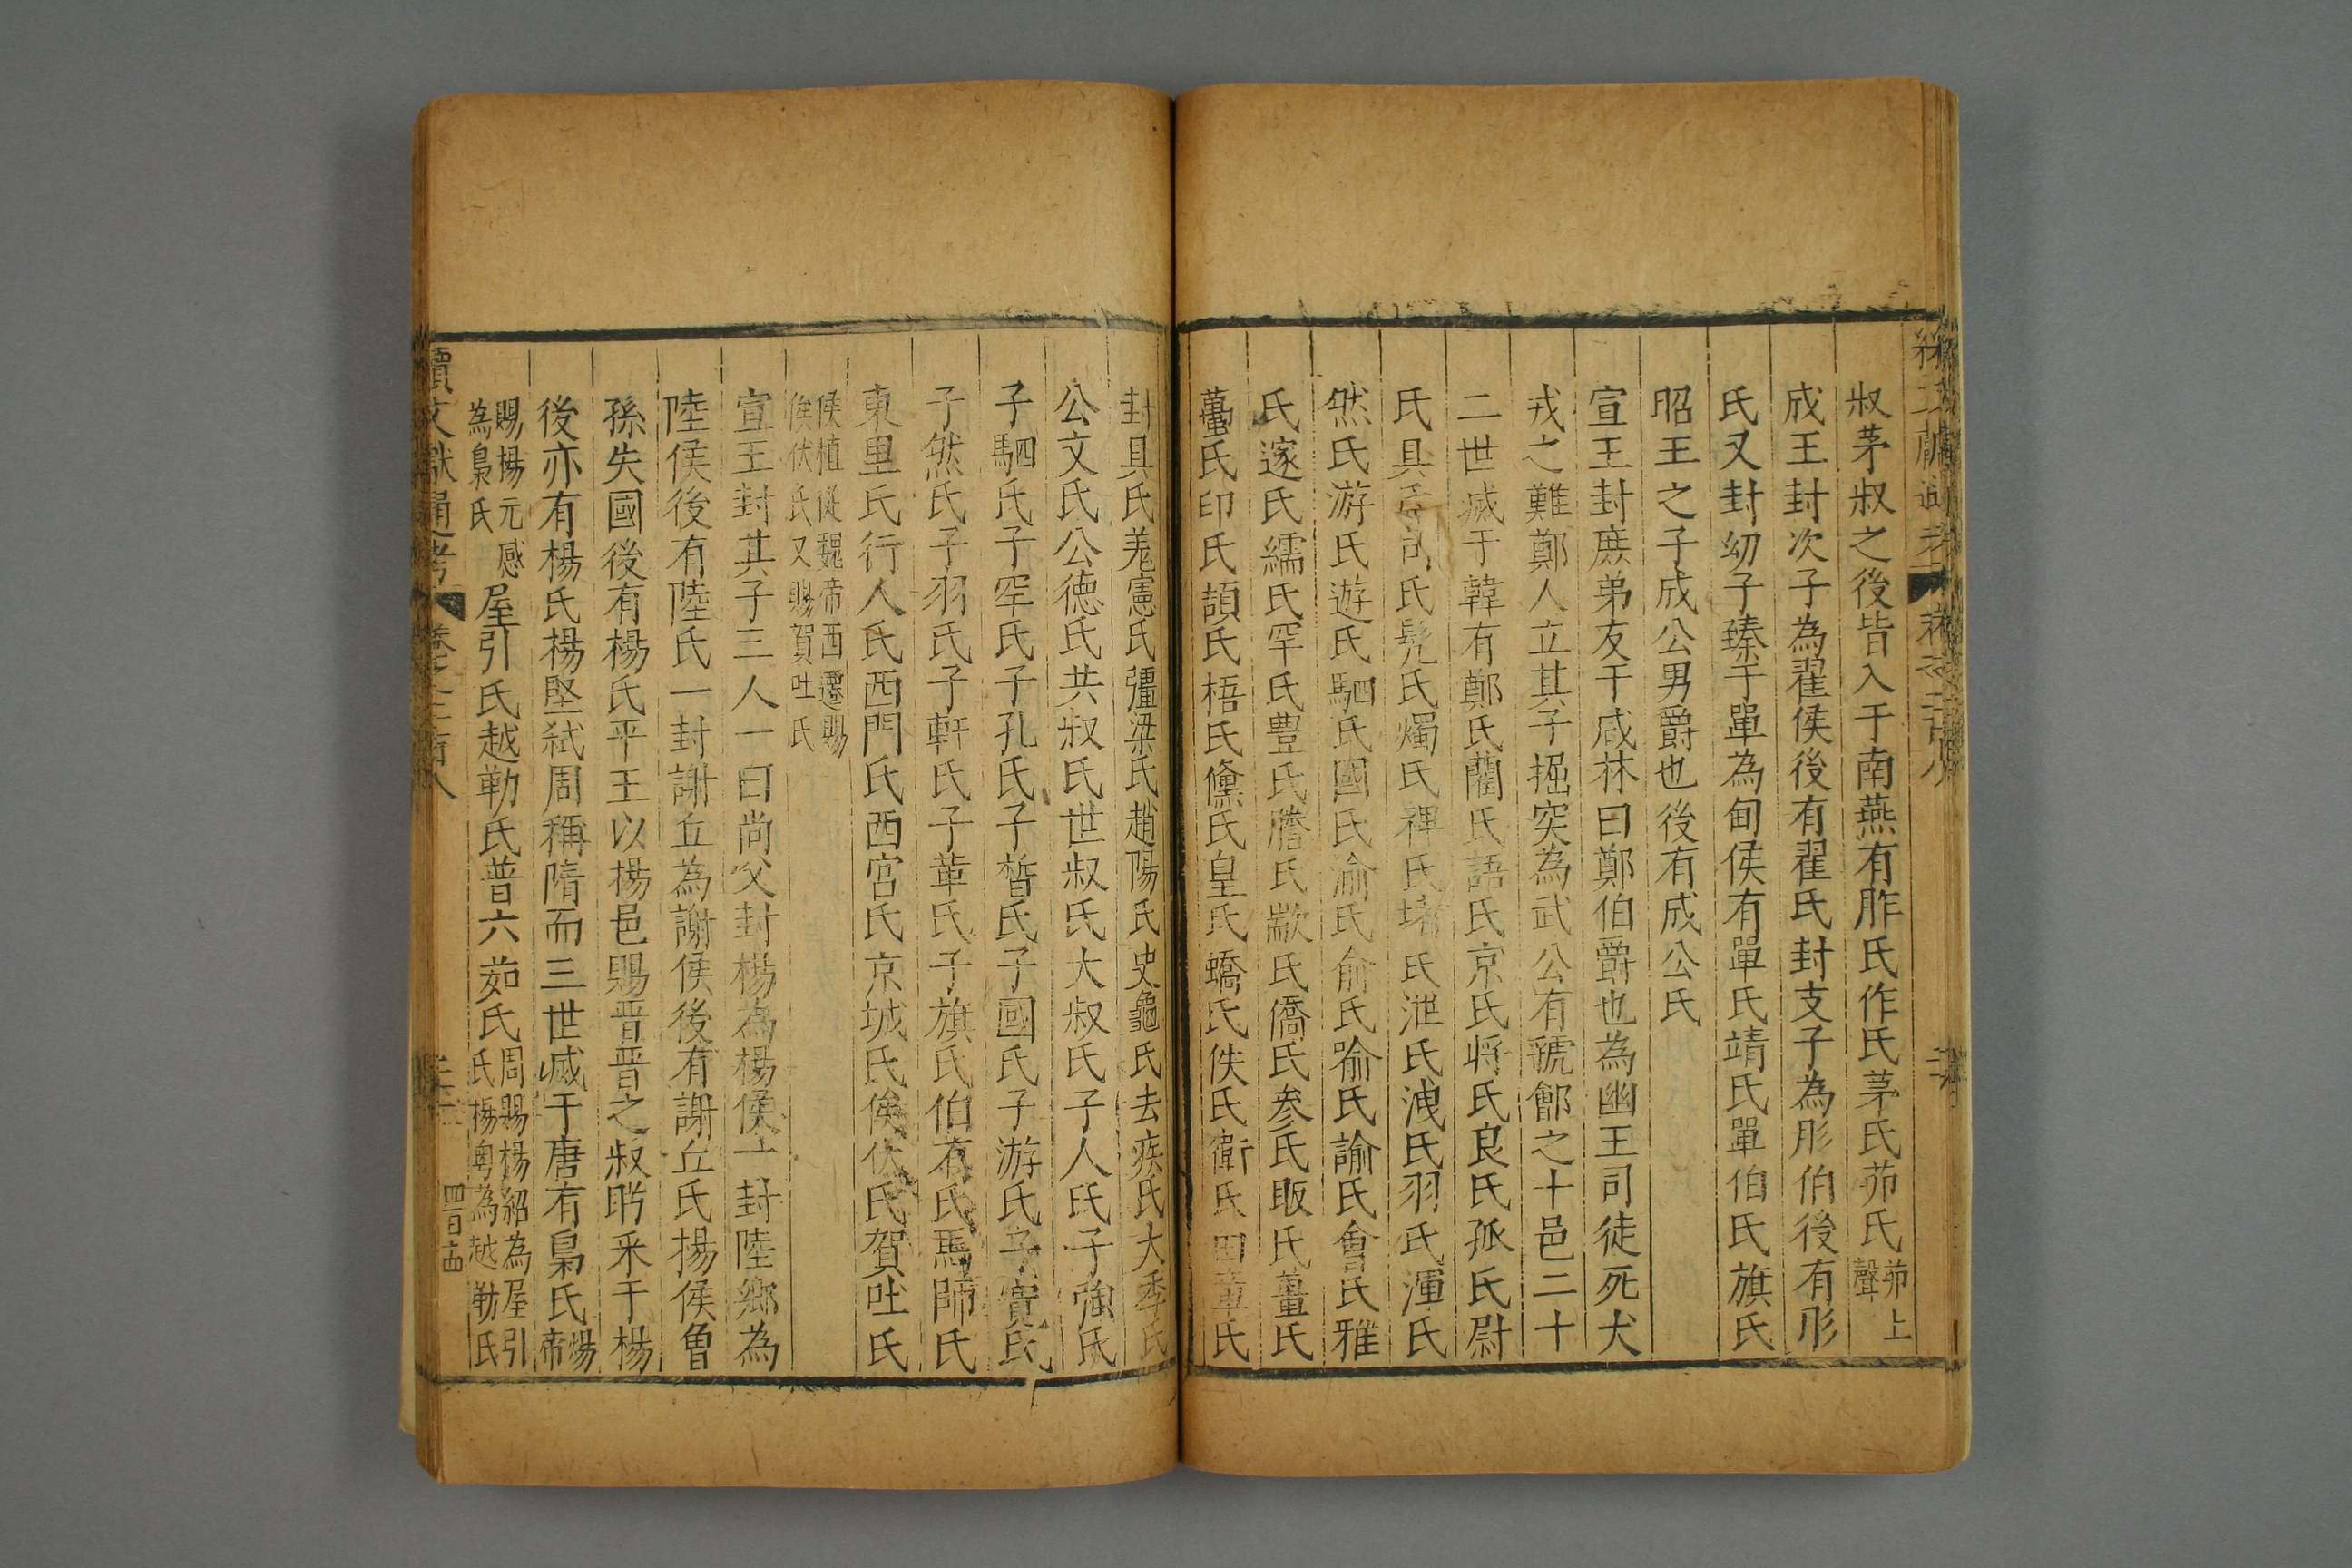 叔茅叔之後皆入于南燕有胙氏作氏茅氏茆氏茆上聲
成王封次子為翟侯後有翟氏封支子為肜伯後有肜
氏又封㓜子臻于單為甸侯有單氏靖氏單伯氏旗氏
昭王之子成公男爵也後有成公氏
宣王封庶弟友于咸林曰鄭伯爵也為幽王司徒死犬
戎之難鄭人立其子掘突為武公有虢鄶之十邑二十
二世滅于韓有鄭氏藺氏語氏京氏將氏良氏孤氏尉
氏具氏髡氏燭氏裨氏堵氏泄氏洩氏羽氏渾氏
然氏游氏遊氏駟氏國氏渝氏俞氏喻氏諭氏會氏雅
氏遂氏繻氏罕氏豐氏騰氏歂氏僑氏參氏販氏蠆氏
萬氏印氏頡氏梧氏儻氏皇氏蟜氏佚氏衛氏章氏
封具氏羌憲氏彊梁氏趙陽氏史龜氏去疾氏大季氏
公文氏公德氏共叔氏世叔氏大叔氏子人氏子強氏
子駟氏子罕氏子孔氏子晳氏子國氏子游氏子寳氏
子然氏子羽氏子軒氏子華氏子旗氏伯有氏馬師氏
東里氏行人氏西門氏西宮氏京城氏俟伏氏賀吐氏
侯植從魏帝西遷賜
俟伏氏又賜賀吐氏
宣王封其子三人一曰尚父封楊為楊侯一封陸鄉為
陸侯後有陸氏一封謝丘為謝侯後有謝丘氏揚侯曾
孫失國後有楊氏平王以楊邑賜晋晋之叔盻采于楊
後亦有楊氏楊堅弒周稱隋而三世滅于唐有梟氏煬帝
賜楊元感為梟氏屋引氏越勒氏普六茹氏周賜楊紹為屋引氏楊粤為越勒氏
續文獻通考 卷之二百八
四百六十四